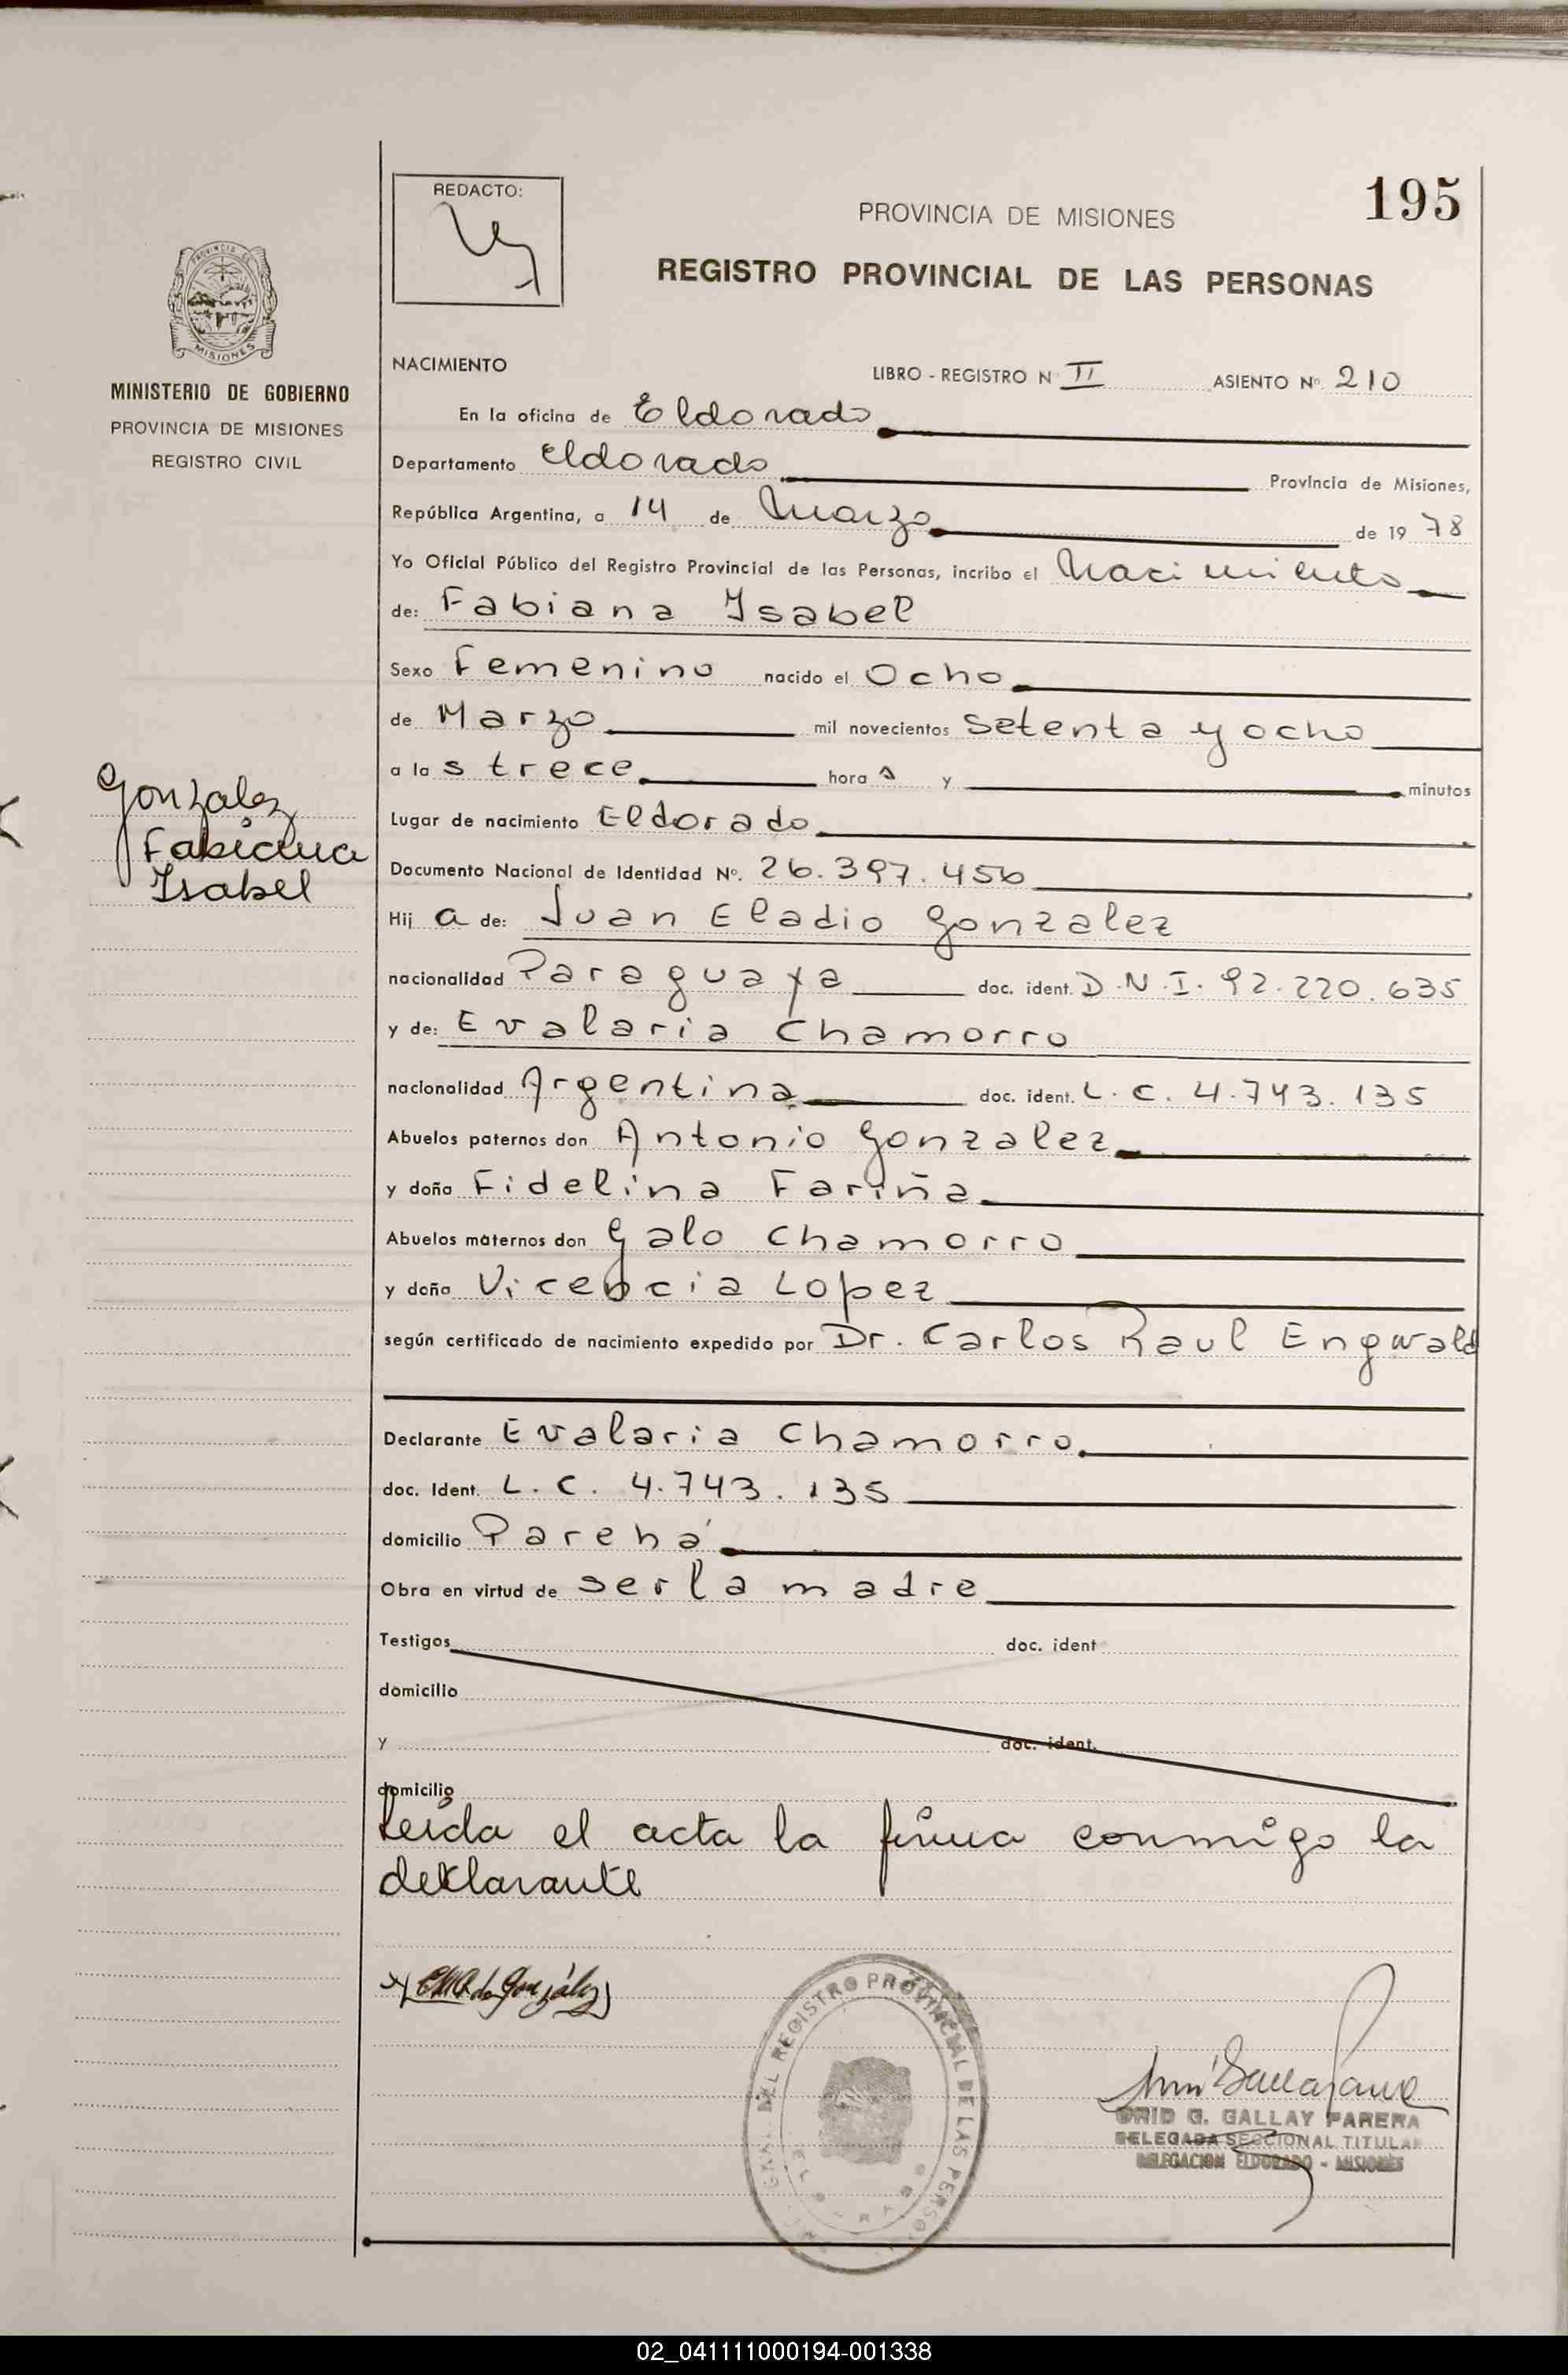 195
REDACTO:
PROVINCIA DE MISIONES
REGISTRO PROVINCIAL DE LAS PERSONAS
PROVINCIA DE
MISIONES
MINISTERIO DE GOBIERNO
PROVINCIA DE MISIONES
REGISTRO CIVIL
NACIMIENTO
LIBRO - REGISTRO Nº II ASIENTO Nº 210
En la oficina de Eldorado
Departamento Eldorado Provincia de Misiones,
República Argentina, a 14 de Marzo de 19 78
Yo Oficial Público del Registro Provincial de las Personas, incribo el Nacimiento
de: Fabiana Isabel
Sexo Femenino nacido el Ocho
de Marzo mil novecientos setenta y ocho
a las trece horas y minutos
Gonzalez
Fabiana
Isabel
Lugar de nacimiento Eldorado
Documento Nacional de Identidad Nº. 26.397.456
Hija de: Juan Eladio Gonzalez
nacionalidad Paraguaya doc. ident. D.N.I. 92.220.635
y de: Evalaria Chamorro
nacionalidad Argentina doc. ident. L.C. 4.743.135
Abuelos paternos don Antonio Gonzalez
y doña Fidelina Fariña
Abuelos maternos don Galo Chamorro
y doña Vicencia Lopez
según certificado de nacimiento expedido por Dr. Carlos Raul Engwald
Declarante Evalaria Chamorro
doc. Ident. L.C. 4.743.135
domicilio Parehá
Obra en virtud de ser la madre
Testigos doc. ident
domicilio
y doc. ident.
domicilio
Leida el acta la firma conmigo la
declarante
de González
DEL REGISTRO PROVINCIAL DE LAS PERSO
G. GALLAY PARERA
DELEGADA SECCIONAL TITULAR
DELEGACION ELDORADO - MISIONES
02_041111000194-001338